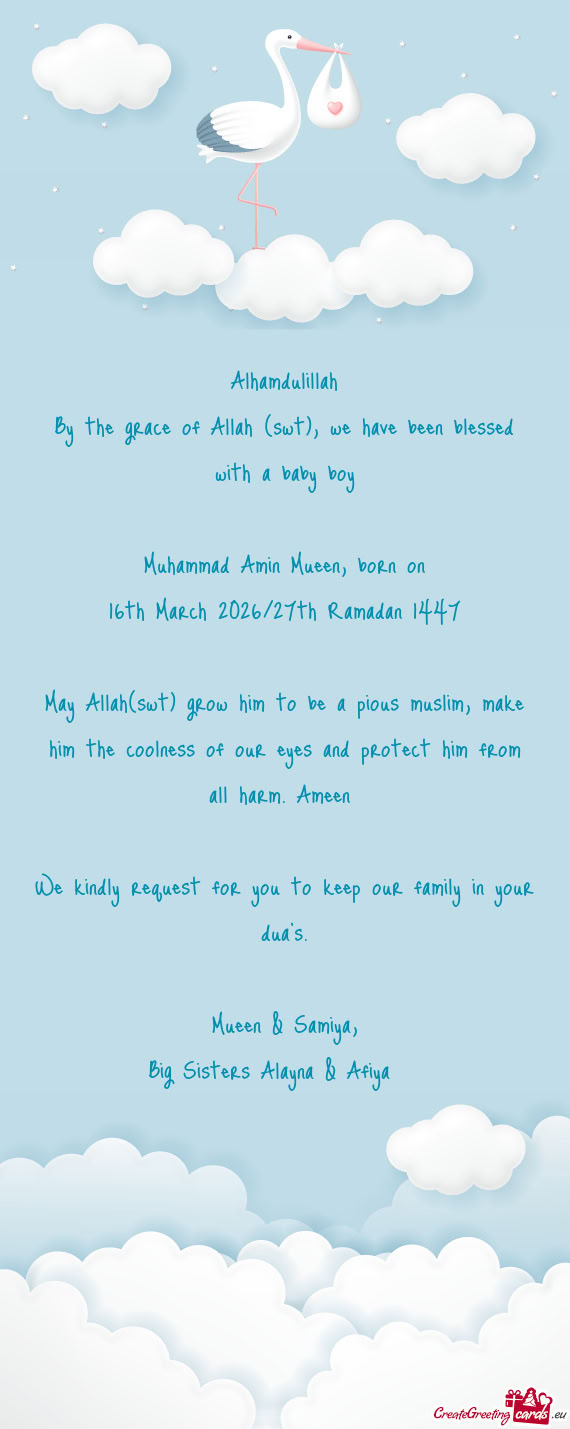 Alhamdulillah
By the grace of Allah (swt), we have been blessed
with a baby boy
Muhammad Amin Mueen, born on
16th March 2026/27th Ramadan 1447
May Allah(swt) grow him to be a pious muslim, make
him the coolness of our eyes and protect him from
all harm. Ameen
We kindly request for you to keep our family in your
dua's.
Mueen & Samiya,
Big Sisters Alayna & Afiya
CreateGreeting cards .eu